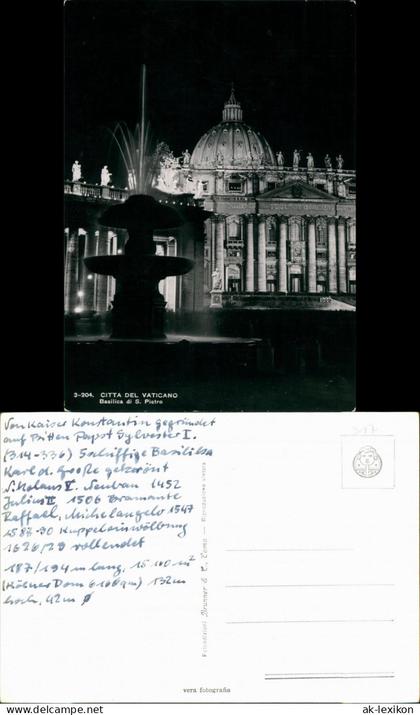 3-204. CITTA DEL VATICANO
Basilica di S. Pietro
Von Kaiser Konstantin gegründet
auf Bitten Papst Sylvester I.
(314-336) 5schiffige Basilika
Karl d. Große gekrönt
Nikolaus V. Neubau 1452
Julius II, 1506 Bramante
Raffael, Michelangelo 1547
1587-90 Kuppeleinwölbung
1626/29 vollendet
187/194 m lang, 15 160 m²
(Kölner Dom 6166 qm) 132m
hoch, 42m Ø
Fotoedizioni Brunner & C., Como - Riproduzione vietata
vera fotografia
© ak-lexikon.com